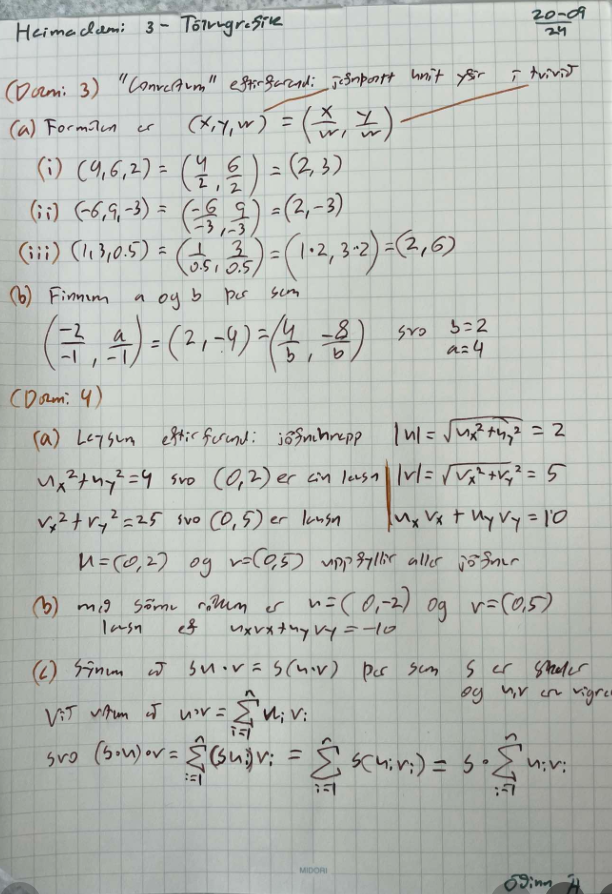 Heimadæmi 3 - Tölvugrafík
20-09
24
(Dæmi 3) "Convertum" eftirfarandi jafnbortt hnit yfir í tvívíð
(a) Formúlan er (x,y,w) = (x/w, y/w)
(i) (4,6,2) = (4/2, 6/2) = (2,3)
(ii) (-6,9,-3) = (-6/-3, 9/-3) = (2,-3)
(iii) (1,3,0.5) = (1/0.5, 3/0.5) = (1·2, 3·2) = (2,6)
(b) Finnum a og b þar sem
(-2/-1, a/-1) = (2,-4) = (4/b, -8/b) svo b=2
a=4
(Dæmi 4)
(a) Leysum eftirfarandi jöfnuhnepp |u| = √(ux²+uy²) = 2
ux²+uy²=4 svo (0,2) er ein lausn |v| = √(vx²+vy²) = 5
vx²+vy²=25 svo (0,5) er lausn ux vx + uy vy = 10
u=(0,2) og v=(0,5) uppfyllir allar jöfnur
(b) með sömu rökum er u=(0,-2) og v=(0,5)
lausn ef uxvx+uyvy=-10
(c) Sýnum að su·v = s(u·v) þar sem s er skalar
og u,v eru vigrar
Við vitum að u·v = Σ(i=1..n) ui vi
svo (s·u)·v = Σ(i=1..n) (sui)vi = Σ(i=1..n) s(uivi) = s · Σ(i=1..n) uivi
MIDORI
Óðinn